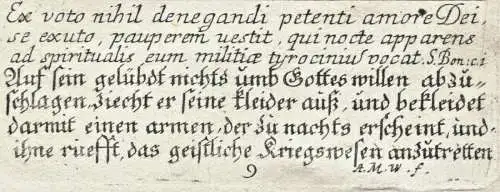 Ex voto nihil denegandi petenti amore Dei,
se exuto, pauperem uestit, qui nocte apparens
ad spiritualis eum militiæ tyrociniũ vocat. S. Bon: c: i
Auf sein gelübdt nichts umb Gottes willen abzu-
schlagen, ziecht er seine kleider auß, und bekleidet
darmit einen armen, der zu nachts erscheint, und
ihne ruefft, das geistliche Kriegswesen anzutretten
9
A. M. W. f.